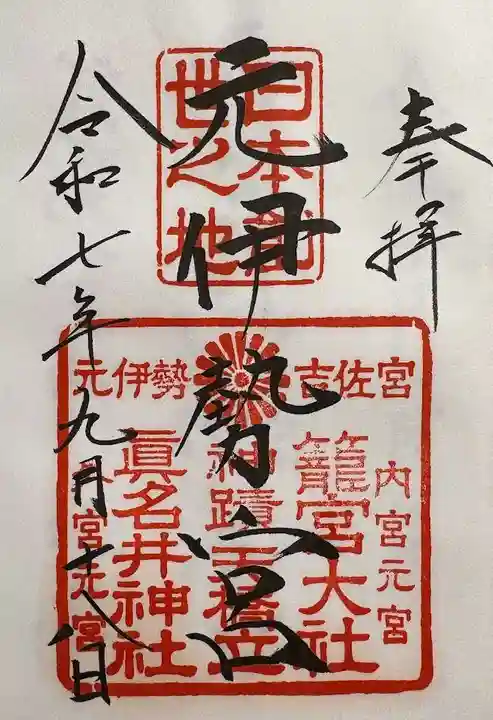 奉拝
日本創
世之地
元伊勢宮
吉佐宮
元伊勢
内宮元宮
籠宮大社
神蹟天橋立
眞名井神社
宮元宮
令和七年九月十八日